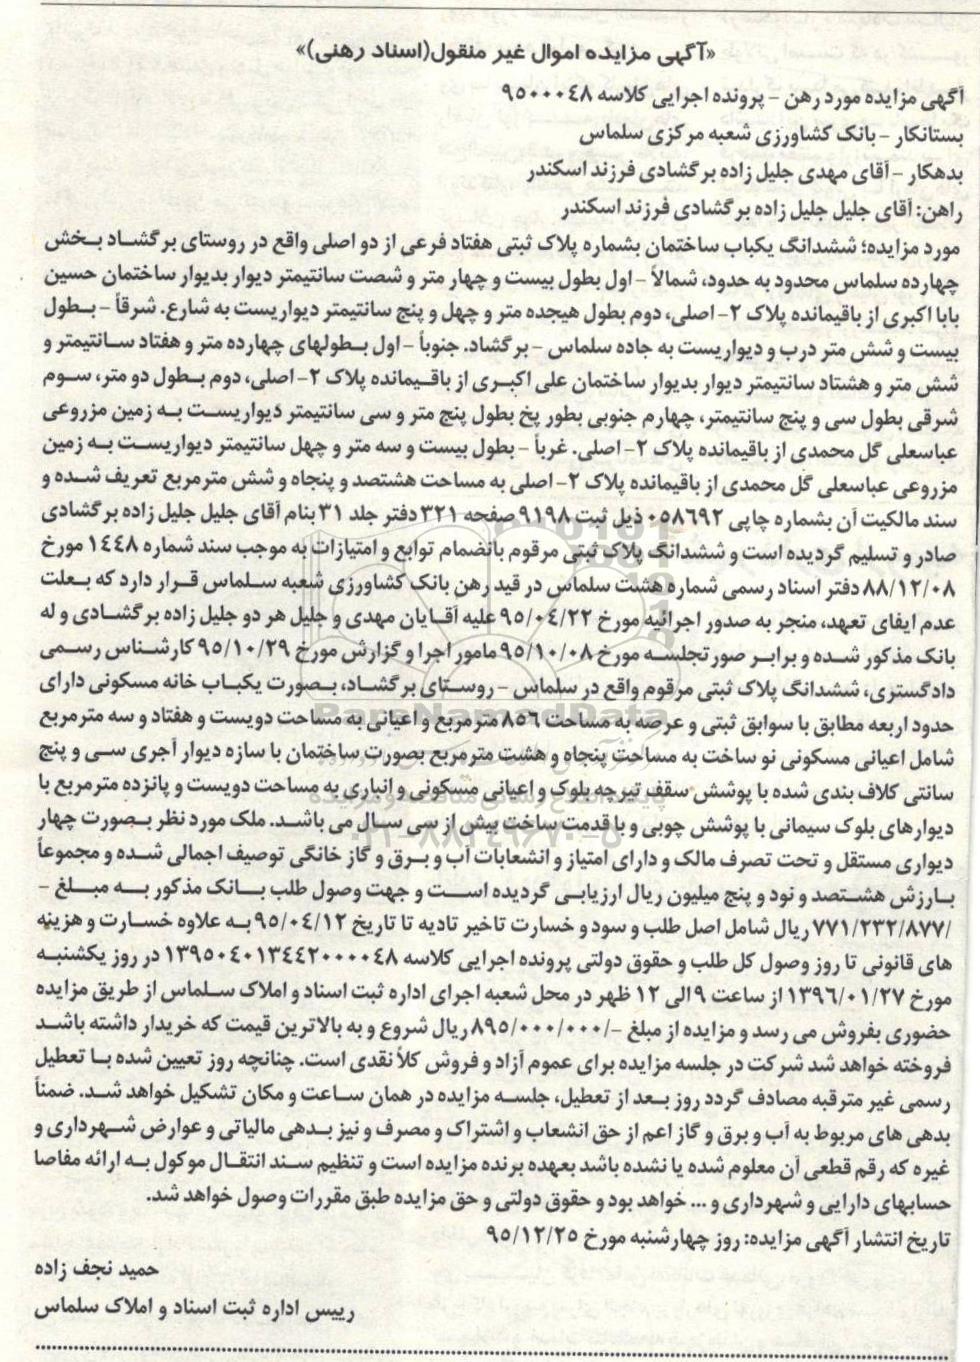 «آگهی مزایده اموال غیر منقول(اسناد رهنی)»
آگهی مزایده مورد رهن - پرونده اجرایی کلاسه ۹۵۰۰۰۴۸
بستانکار - بانک کشاورزی شعبه مرکزی سلماس
بدهکار - آقای مهدی جلیل زاده برگشادی فرزند اسکندر
راهن: آقای جلیل جلیل زاده برگشادی فرزند اسکندر
مورد مزایده؛ ششدانگ یکباب ساختمان بشماره پلاک ثبتی هفتاد فرعی از دو اصلی واقع در روستای برگشاد بخش
چهارده سلماس محدود به حدود، شمالاً - اول بطول بیست و چهار متر و شصت سانتیمتر دیوار بدیوار ساختمان حسین
بابا اکبری از باقیمانده پلاک ۲- اصلی، دوم بطول هیجده متر و چهل و پنج سانتیمتر دیواریست به شارع. شرقاً - بطول
بیست و شش متر درب و دیواریست به جاده سلماس - برگشاد. جنوباً - اول بطولهای چهارده متر و هفتاد سانتیمتر و
شش متر و هشتاد سانتیمتر دیوار بدیوار ساختمان علی اکبری از باقیمانده پلاک ۲- اصلی، دوم بطول دو متر، سوم
شرقی بطول سی و پنج سانتیمتر، چهارم جنوبی بطور پخ بطول پنج متر و سی سانتیمتر دیواریست به زمین مزروعی
عباسعلی گل محمدی از باقیمانده پلاک ۲- اصلی. غرباً - بطول بیست و سه متر و چهل سانتیمتر دیواریست به زمین
مزروعی عباسعلی گل محمدی از باقیمانده پلاک ۲- اصلی به مساحت هشتصد و پنجاه و شش مترمربع تعریف شده و
سند مالکیت آن بشماره چاپی ۰۵۸۶۹۲ ذیل ثبت ۹۱۹۸ صفحه ۳۲۱ دفتر جلد ۳۱ بنام آقای جلیل جلیل زاده برگشادی
صادر و تسلیم گردیده است و ششدانگ پلاک ثبتی مرقوم بانضمام توابع و امتیازات به موجب سند شماره ۱۴۴۸ مورخ
۸۸/۱۲/۰۸ دفتر اسناد رسمی شماره هشت سلماس در قید رهن بانک کشاورزی شعبه سلماس قرار دارد که بعلت
عدم ایفای تعهد، منجر به صدور اجرائیه مورخ ۹۵/۰۴/۲۲ علیه آقایان مهدی و جلیل هر دو جلیل زاده برگشادی و له
بانک مذکور شده و برابر صورتجلسه مورخ ۹۵/۱۰/۰۸ مامور اجرا و گزارش مورخ ۹۵/۱۰/۲۹ کارشناس رسمی
دادگستری، ششدانگ پلاک ثبتی مرقوم واقع در سلماس - روستای برگشاد، بصورت یکباب خانه مسکونی دارای
حدود اربعه مطابق با سوابق ثبتی و عرصه به مساحت ۸۵۶ مترمربع و اعیانی به مساحت دویست و هفتاد و سه مترمربع
شامل اعیانی مسکونی نو ساخت به مساحت پنجاه و هشت مترمربع بصورت ساختمان با سازه دیوار آجری سی و پنج
سانتی کلاف بندی شده با پوشش سقف تیرچه بلوک و اعیانی مسکونی و انباری به مساحت دویست و پانزده مترمربع با
دیوارهای بلوک سیمانی با پوشش چوبی و با قدمت ساخت بیش از سی سال می باشد. ملک مورد نظر بصورت چهار
دیواری مستقل و تحت تصرف مالک و دارای امتیاز و انشعابات آب و برق و گاز خانگی توصیف اجمالی شده و مجموعاً
بارزش هشتصد و نود و پنج میلیون ریال ارزیابی گردیده است و جهت وصول طلب بانک مذکور به مبلغ -
/۷۷۱/۲۳۲/۸۷۷ ریال شامل اصل طلب و سود و خسارت تاخیر تادیه تا تاریخ ۹۵/۰۴/۱۲ به علاوه خسارت و هزینه
های قانونی تا روز وصول کل طلب و حقوق دولتی پرونده اجرایی کلاسه ۱۳۹۵۰۴۰۱۳۴۴۲۰۰۰۰۴۸ در روز یکشنبه
مورخ ۱۳۹۶/۰۱/۲۷ از ساعت ۹ الی ۱۲ ظهر در محل شعبه اجرای اداره ثبت اسناد و املاک سلماس از طریق مزایده
حضوری بفروش می رسد و مزایده از مبلغ -/۸۹۵/۰۰۰/۰۰۰ ریال شروع و به بالاترین قیمت که خریدار داشته باشد
فروخته خواهد شد شرکت در جلسه مزایده برای عموم آزاد و فروش کلاً نقدی است. چنانچه روز تعیین شده با تعطیل
رسمی غیر مترقبه مصادف گردد روز بعد از تعطیل، جلسه مزایده در همان ساعت و مکان تشکیل خواهد شد. ضمناً
بدهی های مربوط به آب و برق و گاز اعم از حق انشعاب و اشتراک و مصرف و نیز بدهی مالیاتی و عوارض شهرداری و
غیره که رقم قطعی آن معلوم شده یا نشده باشد بعهده برنده مزایده است و تنظیم سند انتقال موکول به ارائه مفاصا
حسابهای دارایی و شهرداری و ... خواهد بود و حقوق دولتی و حق مزایده طبق مقررات وصول خواهد شد.
تاریخ انتشار آگهی مزایده: روز چهارشنبه مورخ ۹۵/۱۲/۲۵
حمید نجف زاده
رییس اداره ثبت اسناد و املاک سلماس
ParsNamadData
۰۲۱-۸۸۳۴۹۶۷۰-۵